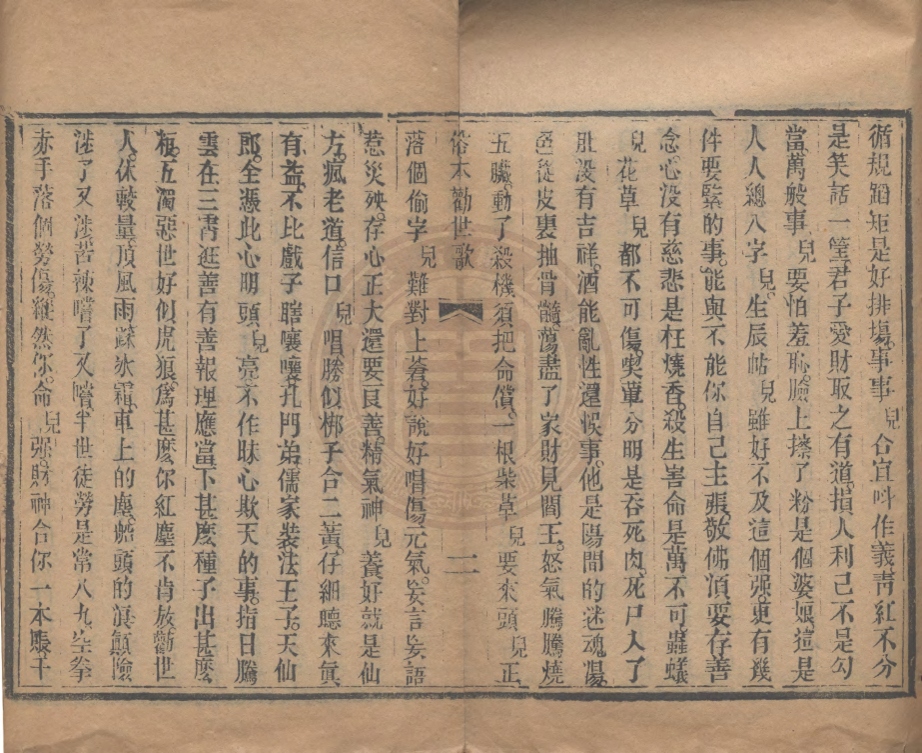 循規蹈矩是好排場。事事兒合宜呌作義靑紅不分
是笑話一筐。君子愛財取之有道。損人利己不是勾
當。萬般事兒要怕羞恥。臉上擦了粉是個婆娘。這是
人人總八字兒生辰帖兒雖好不及這個强。更有幾
件要緊的事。能與不能你自己主張。敬佛須要存善
念心沒有慈悲是枉燒香。殺生害命是萬不可。蟲蟻
兒花草兒都不可傷。喫葷分明是吞死肉。死尸入了
肚沒有吉祥。酒能亂性還悞事。他是陽間的迷魂湯。
色從皮裏抽骨髓。蕩盡了家財見閻王。怒氣騰騰燒
五臟。動了殺機須把命償。一根柴草兒要來頭兒正
俗本勸世歌 二
落個偷字兒難對上蒼。好說好唱傷元氣。妄言妄語
惹災殃。存心正大還要良善。精氣神兒養好就是仙
方。瘋老道。信口兒唱勝似梆子合二簧。仔細聽來眞
有益。不比戲子瞎嚷嚷。孔門弟儒家裝法王子。天仙
郎。全憑此心明頭兒。亳不作昧心欺天的事。指日騰
雲在三霄逛善有善報理應當。下甚麽種子出甚麽
秧。五濁惡世好似虎狼。爲甚麽你紅塵不肯放勸世
人。休較量。頂風雨。躧氷霜。車上的塵。轎頭的
涉了又涉。苦辣嚐了又嚐半世徒勞是常八九。空拳
赤手落個勞傷。縱然你。命兒强。財神合你一本賬千